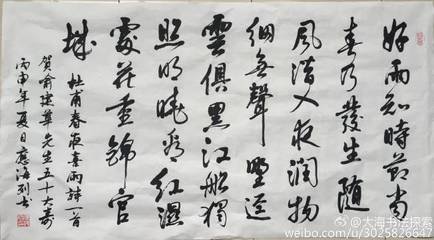 好雨知時節當
春乃發生随
風潜入夜润物
細無聲野迳
雲俱黑江船獨
照明曉看紅濕
處花重錦官
城
杜甫春夜喜雨詩一首
賀俞先生五十大壽
丙申年夏日應海书
@大海书法探索
weibo.com/u/3025826647